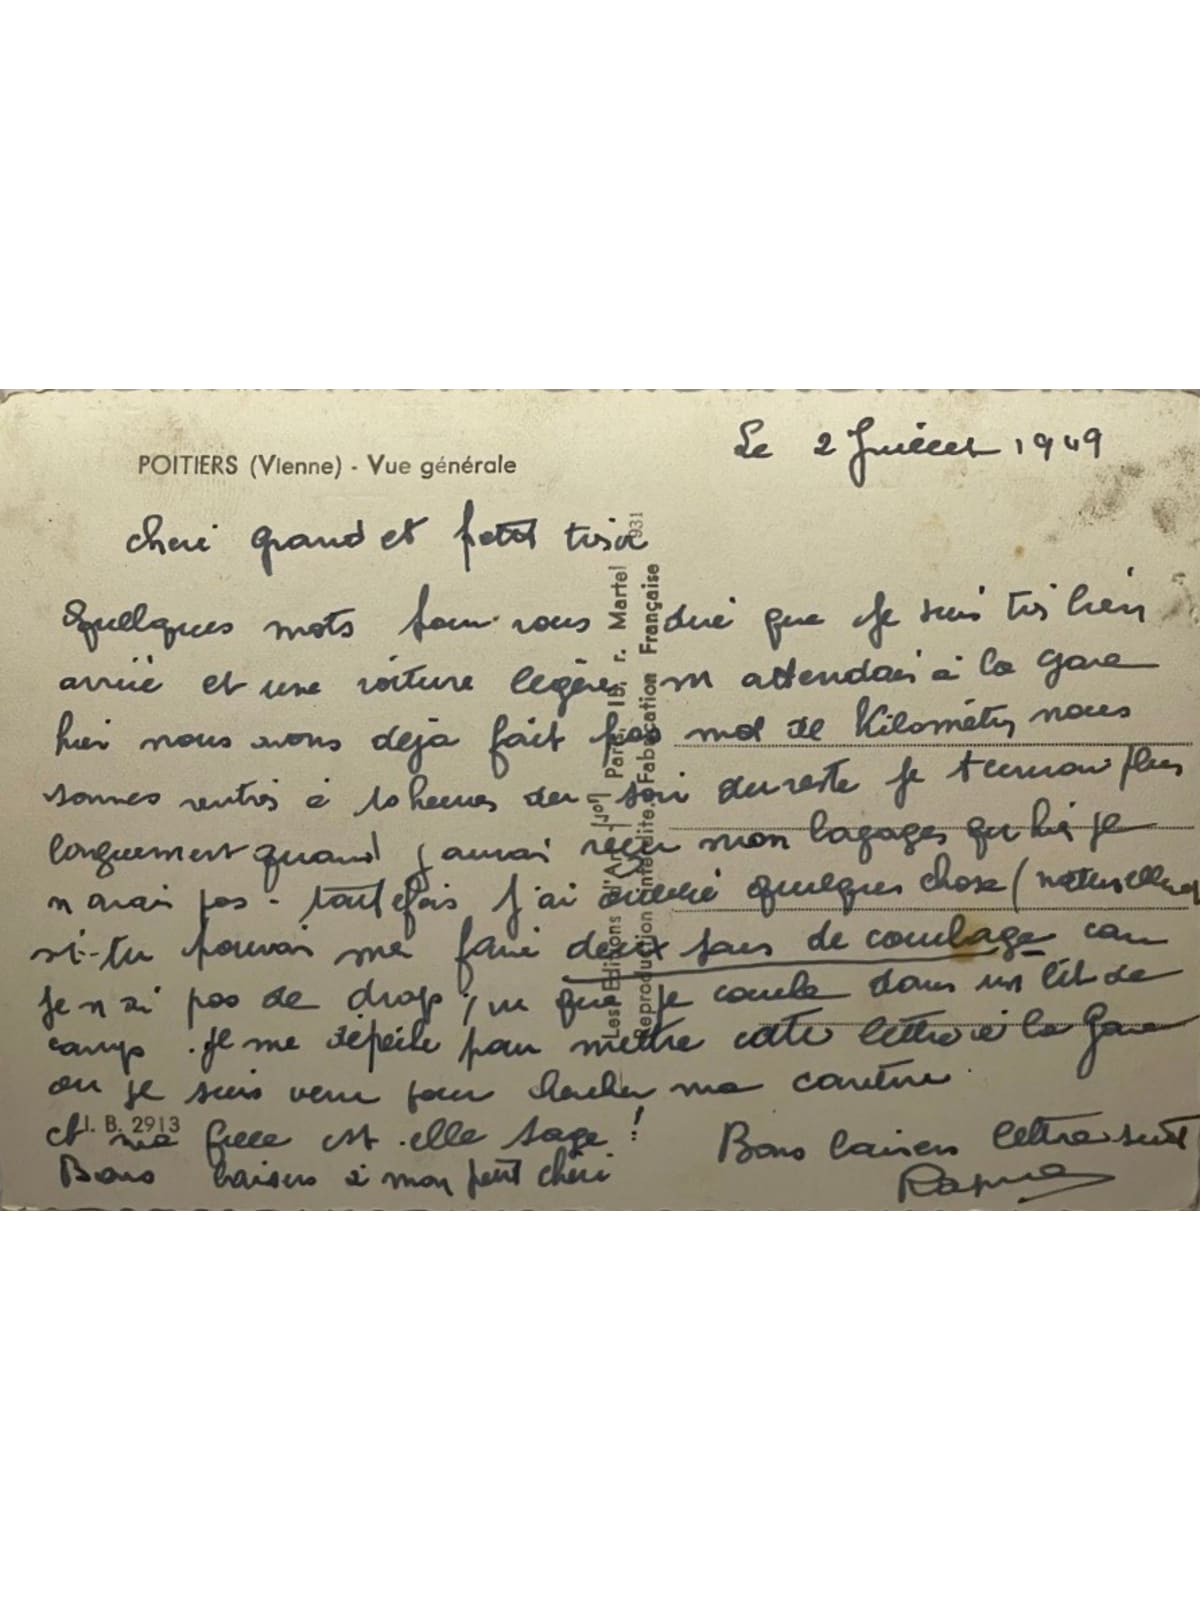 Le 2 Juillet 1949
POITIERS (Vienne) - Vue générale
cheri grand et petit
Quelques mots pour vous dire que je suis très bien
arrivé et une voiture légère m attendais à la gare
hier nous avons déjà fait pas mal de Kilomètres nous
sommes rentrés à 10 heures du soir du reste je t plus
longuement quand j aurai reçu mon bagages qu hier je
n avais pas - toutefois j'ai oublié quelques chose (naturellement
si-tu pouvais me faire deux sacs de couchage car
je n ai pas de drap, vu que je couche dans un lit de
camp. Je me dépêche pour mettre cette lettre à la Gare
ou je suis venu pour chercher ma cantine.
et ma fille est-elle sage !
Bons baisers à mon petit chéri
Bons baisers lettre suit
Les Editions d'Art "Yvon" Paris, 15, r. Martel
Reproduction interdite. Fabrication Française
931
I. B. 2913